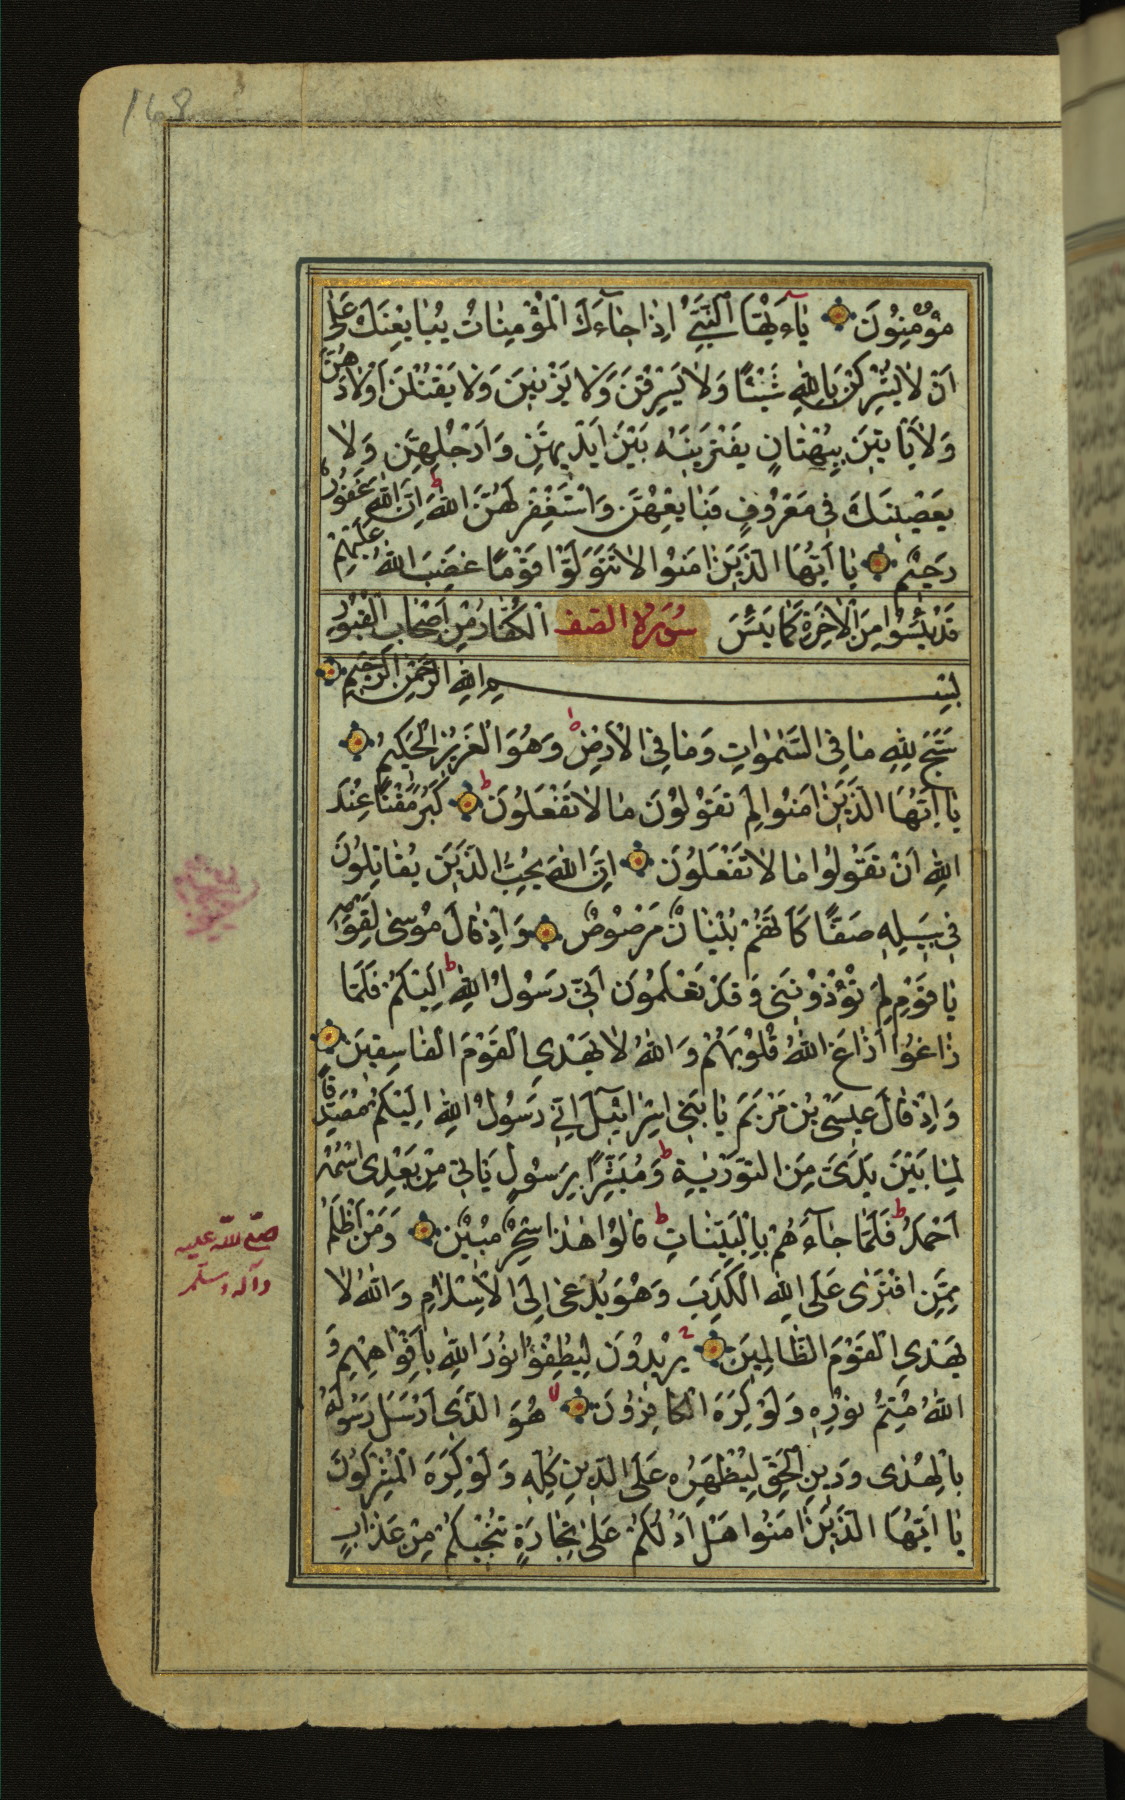 168
مُؤْمِنُونَ يَآءَيُّهَا النَّبِيُّ اِذَا جَآءَكَ الْمُؤْمِنَاتُ يُبَايِعْنَكَ عَلٰى
اَنْ لَا يُشْرِكْنَ بِاللّٰهِ شَيْئًا وَلَا يَسْرِقْنَ وَلَا يَزْنِينَ وَلَا يَقْتُلْنَ اَوْلَادَهُنَّ
وَلَا يَأْتِينَ بِبُهْتَانٍ يَفْتَرِينَهُ بَيْنَ اَيْدِيهِنَّ وَاَرْجُلِهِنَّ وَلَا
يَعْصِينَكَ فِي مَعْرُوفٍ فَبَايِعْهُنَّ وَاسْتَغْفِرْ لَهُنَّ اللّٰهَ ط اِنَّ اللّٰهَ غَفُورٌ
رَحِيمٌ يَا اَيُّهَا الَّذِينَ اٰمَنُوا لَا تَتَوَلَّوْا قَوْمًا غَضِبَ اللّٰهُ عَلَيْهِمْ
قَدْ يَئِسُوا مِنَ الْاٰخِرَةِ كَمَا يَئِسَ سُورة الصف الْكُفَّارُ مِنْ اَصْحَابِ الْقُبُورِ
بِسْمِ اللّٰهِ الرَّحْمٰنِ الرَّحِيمِ
سَبَّحَ لِلّٰهِ مَا فِي السَّمٰوَاتِ وَمَا فِي الْاَرْضِ وَهُوَ الْعَزِيزُ الْحَكِيمُ
يَا اَيُّهَا الَّذِينَ اٰمَنُوا لِمَ تَقُولُونَ مَا لَا تَفْعَلُونَ ط كَبُرَ مَقْتًا عِنْدَ
اللّٰهِ اَنْ تَقُولُوا مَا لَا تَفْعَلُونَ اِنَّ اللّٰهَ يُحِبُّ الَّذِينَ يُقَاتِلُونَ
فِي سَبِيلِهِ صَفًّا كَاَنَّهُمْ بُنْيَانٌ مَرْصُوصٌ وَاِذْ قَالَ مُوسٰى لِقَوْمِهِ
يَا قَوْمِ لِمَ تُؤْذُونَنِي وَقَدْ تَعْلَمُونَ اَنِّي رَسُولُ اللّٰهِ اِلَيْكُمْ ط فَلَمَّا
زَاغُوا اَزَاغَ اللّٰهُ قُلُوبَهُمْ وَاللّٰهُ لَا يَهْدِي الْقَوْمَ الْفَاسِقِينَ
وَاِذْ قَالَ عِيسَى بْنُ مَرْيَمَ يَا بَنِي اِسْرَائِيلَ اِنِّي رَسُولُ اللّٰهِ اِلَيْكُمْ مُصَدِّقًا
لِمَا بَيْنَ يَدَيَّ مِنَ التَّوْرٰيةِ وَمُبَشِّرًا بِرَسُولٍ يَأْتِي مِنْ بَعْدِي اسْمُهُ
اَحْمَدُ ط فَلَمَّا جَآءَهُمْ بِالْبَيِّنَاتِ ط قَالُوا هٰذَا سِحْرٌ مُبِينٌ وَمَنْ اَظْلَمُ
مِمَّنِ افْتَرٰى عَلَى اللّٰهِ الْكَذِبَ وَهُوَ يُدْعٰى اِلَى الْاِسْلَامِ وَاللّٰهُ لَا
يَهْدِي الْقَوْمَ الظَّالِمِينَ يُرِيدُونَ لِيُطْفِؤُا نُورَ اللّٰهِ بِاَفْوَاهِهِمْ وَ
اللّٰهُ مُتِمُّ نُورِهِ وَلَوْ كَرِهَ الْكَافِرُونَ لا هُوَ الَّذِي اَرْسَلَ رَسُولَهُ
بِالْهُدٰى وَدِينِ الْحَقِّ لِيُظْهِرَهُ عَلَى الدِّينِ كُلِّهِ وَلَوْ كَرِهَ الْمُشْرِكُونَ
يَا اَيُّهَا الَّذِينَ اٰمَنُوا هَلْ اَدُلُّكُمْ عَلٰى تِجَارَةٍ تُنْجِيكُمْ مِنْ عَذَابٍ
صلى الله عليه
وآله وسلم